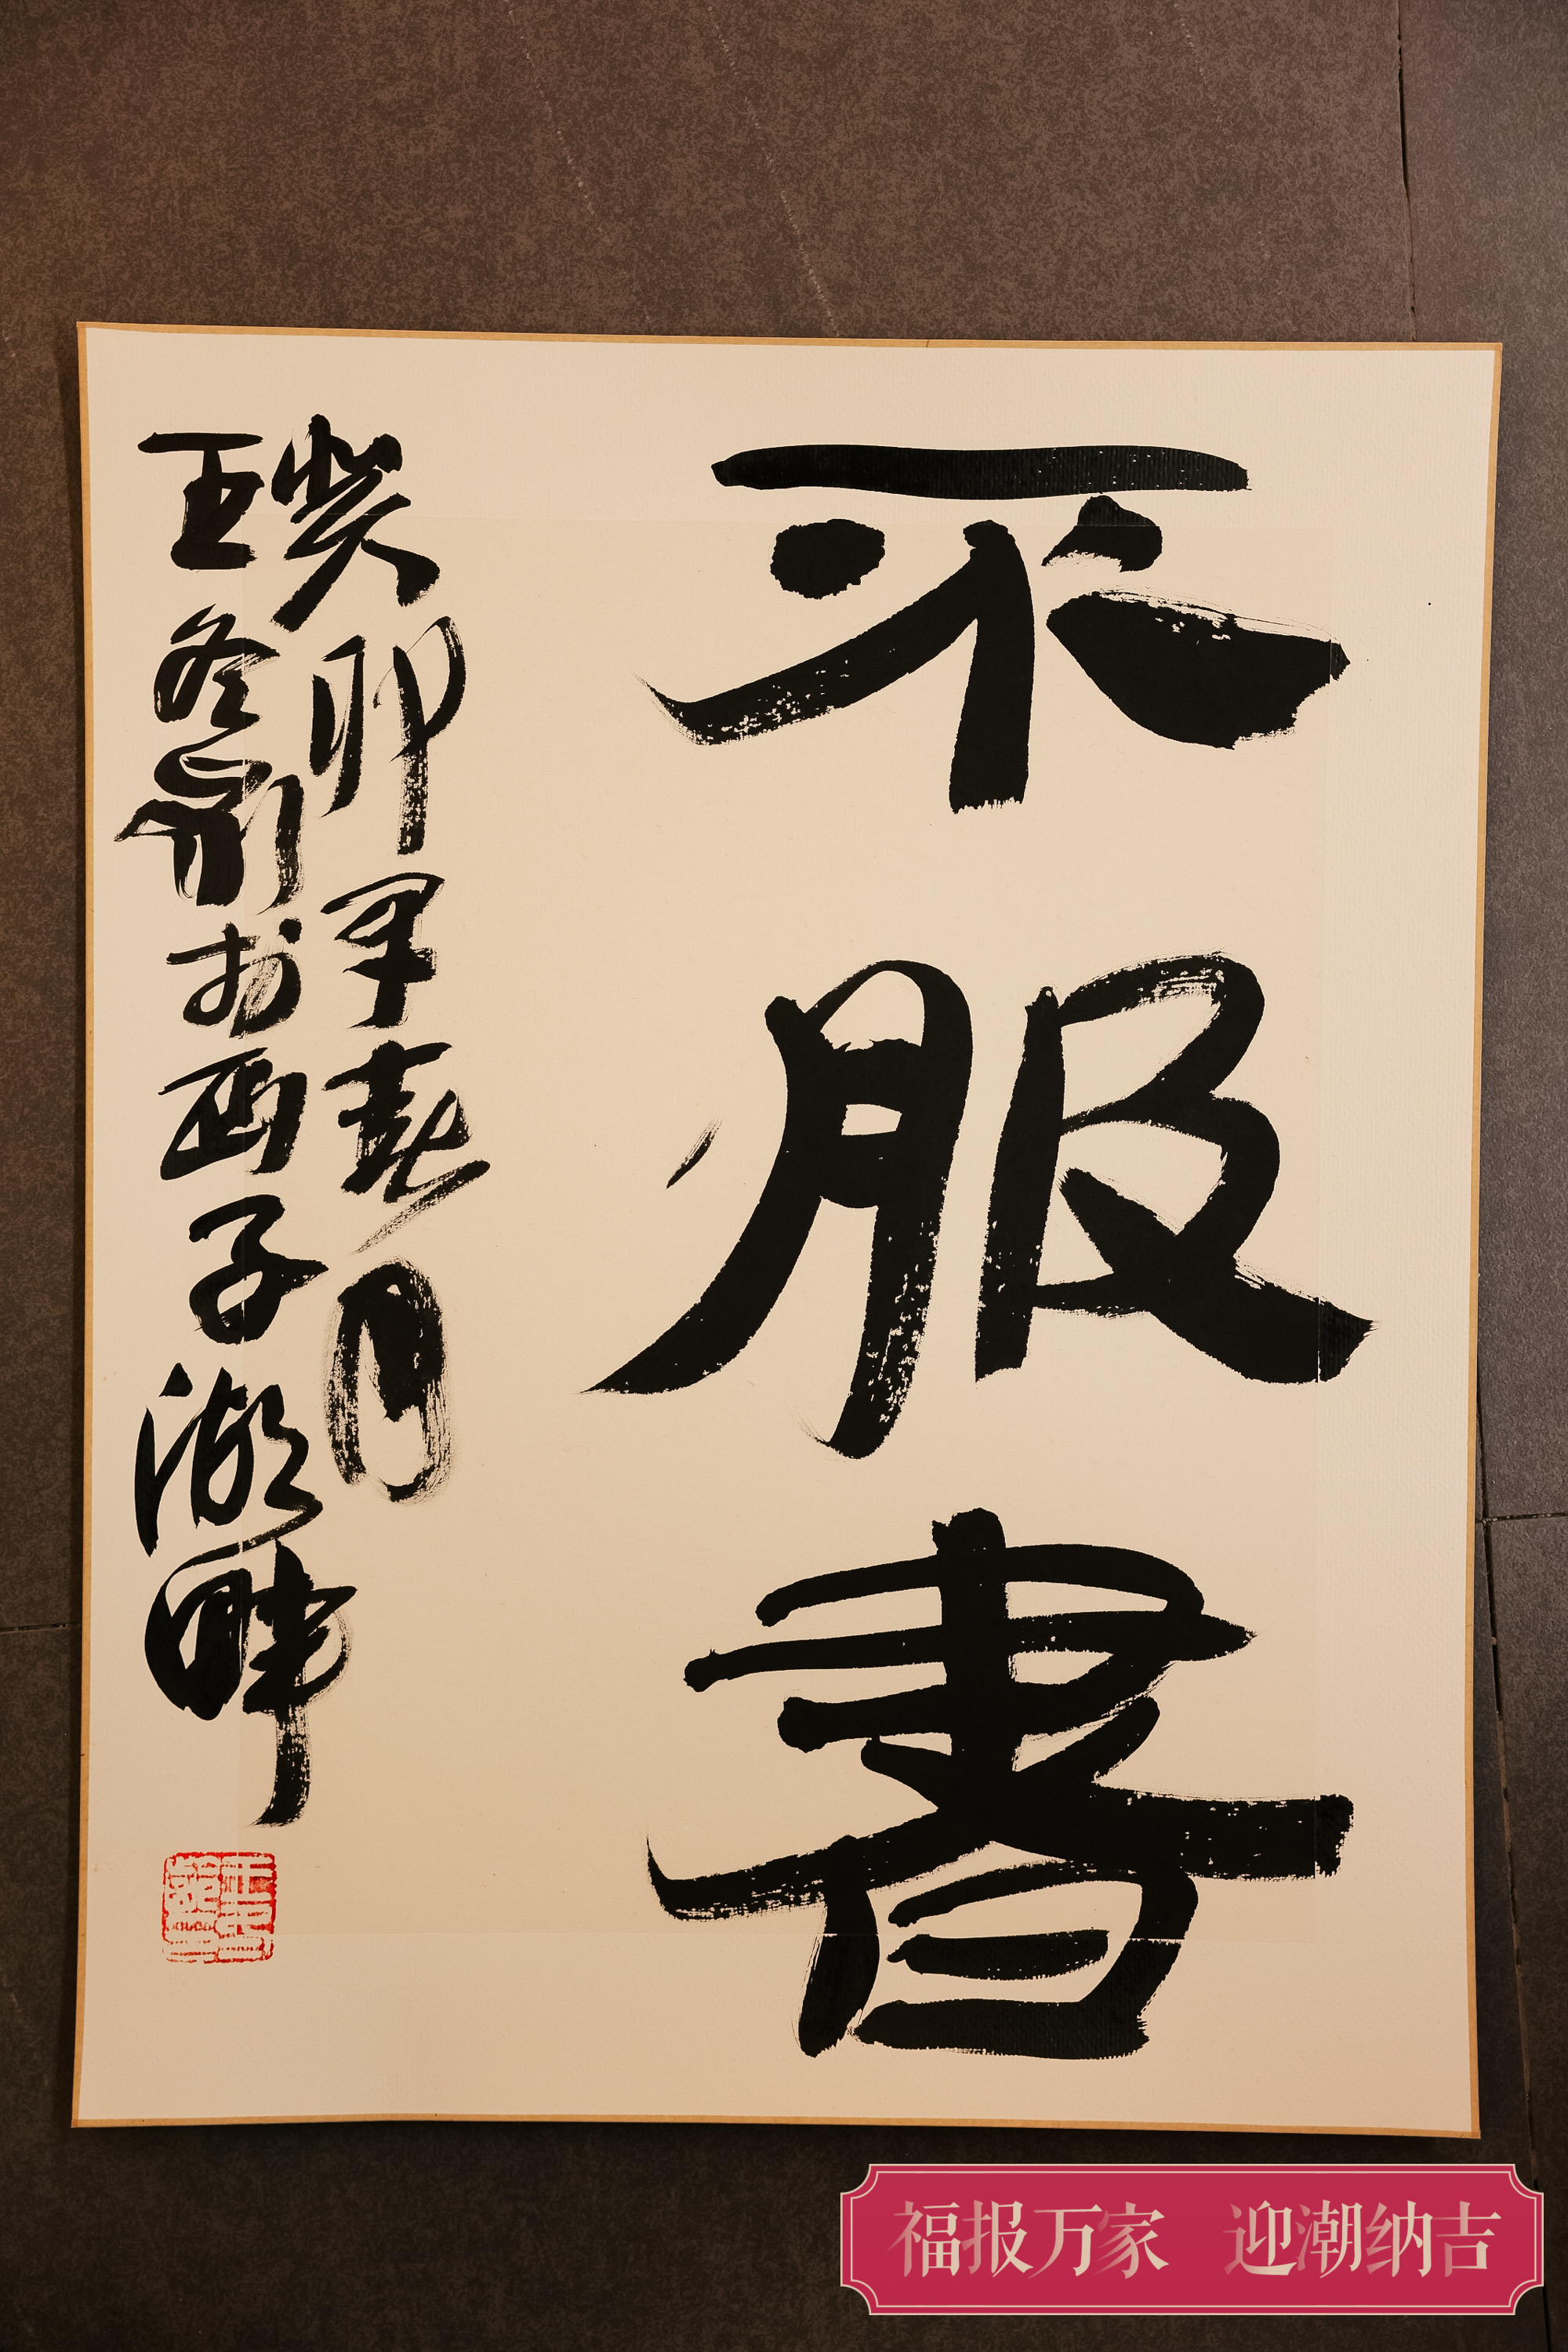 不服書
癸卯年春月
王冬齡於西子湖畔
福报万家 迎潮纳吉